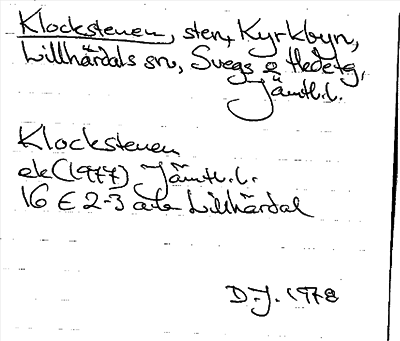 Klockstenen, sten, Kyrkbyn,
Lillhärdals sn, Svegs o Hedetg,
Jämtl.l.
Klockstenen
ek (1977) Jämtl.l.
16 E 2-3 a Lillhärdal
D-J. 1978